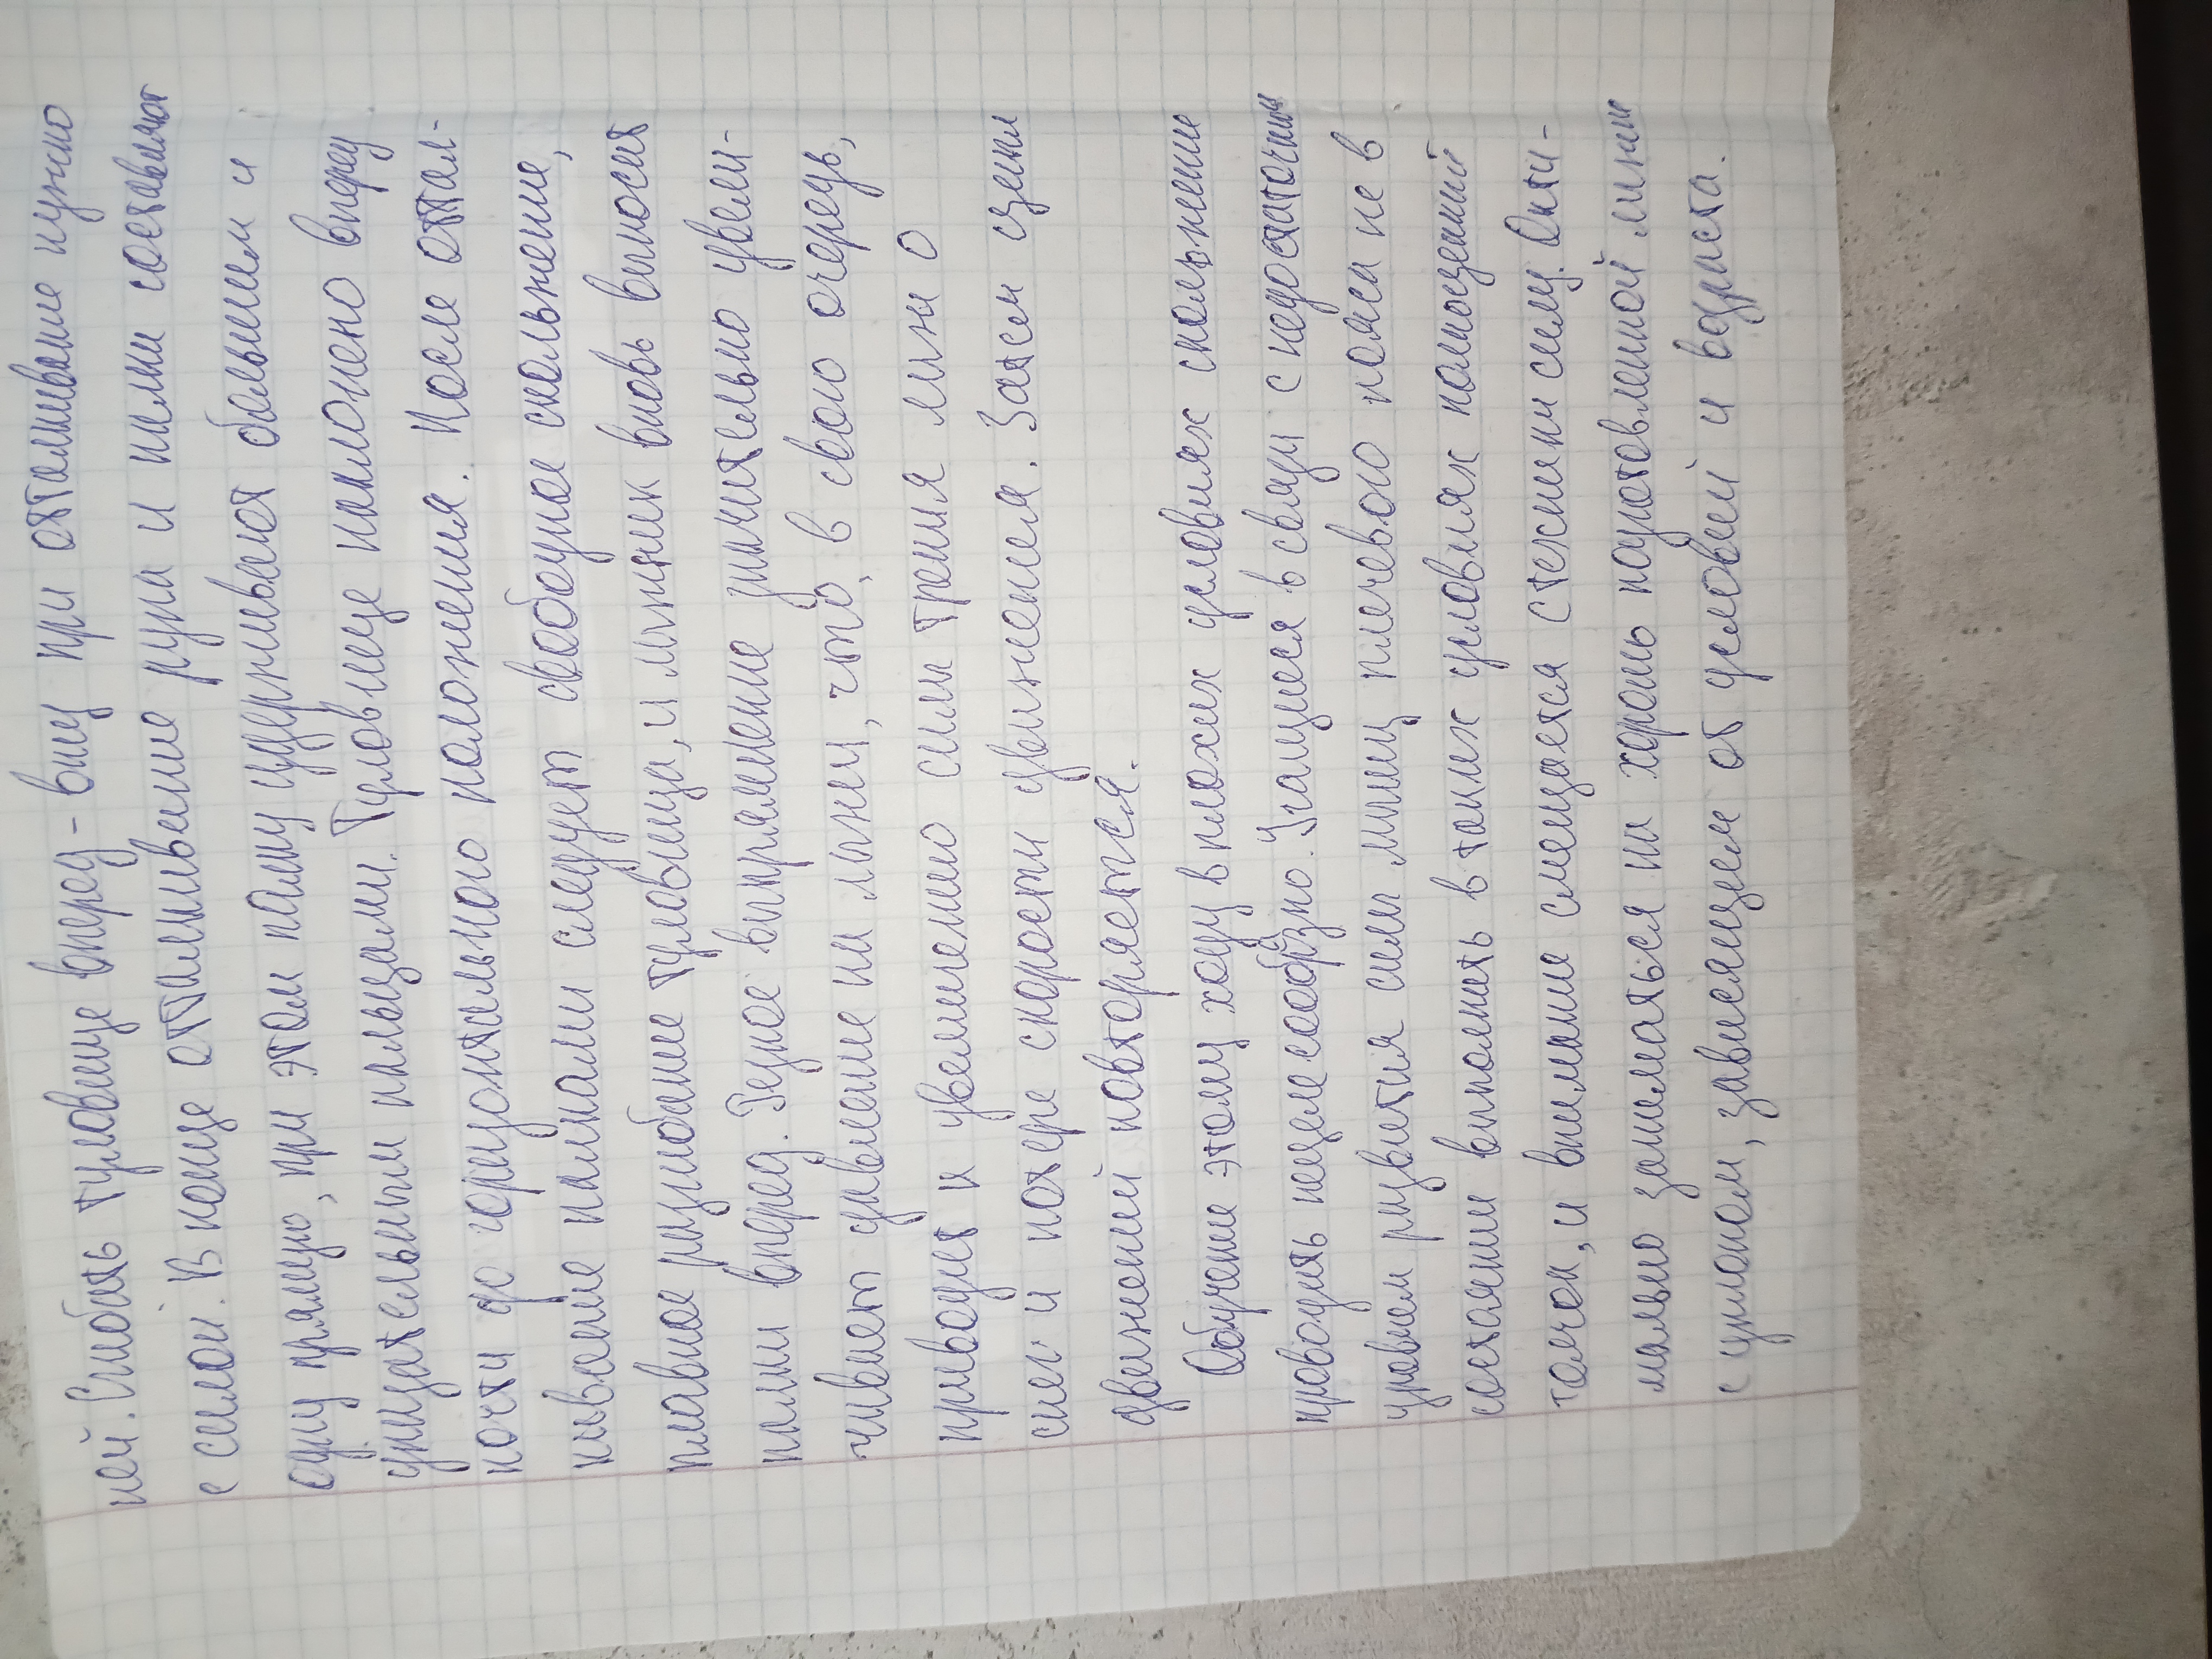 ней. Сгибать туловище вперед - вниз при отталкивание нужно
с силой. В конце отталкивание рука и палки составляют
одну прямую, при этом палку удерживают большим и
указательным пальцами. Туловище наклонено вперед
почти до горизонтального положения. После оттал-
кивание палками следует свободное скольжение,
плавное разгибание туловища, и лыжник вновь выносит
палки вперед. Резкое выпрямление значительно увели-
чивает давление на лыжи, что, в свою очередь,
приводит к увеличению силы трения лыж о
снег и потере скорости движения. Затем цикл
движений повторяется.
Обучение этому ходу в плохих условиях скольжение
проводить нецелесообразно. Учащиеся в связи с недостаточным
уровнем развития силы мышц плечевого пояса не в
состоянии выполнять в таких условиях полноценный
толчок, и внимание смещается с техники силу. Опти-
мально заниматься на хорошо подготовленной лыжни
с уклоном, зависящем от условий и возраста.